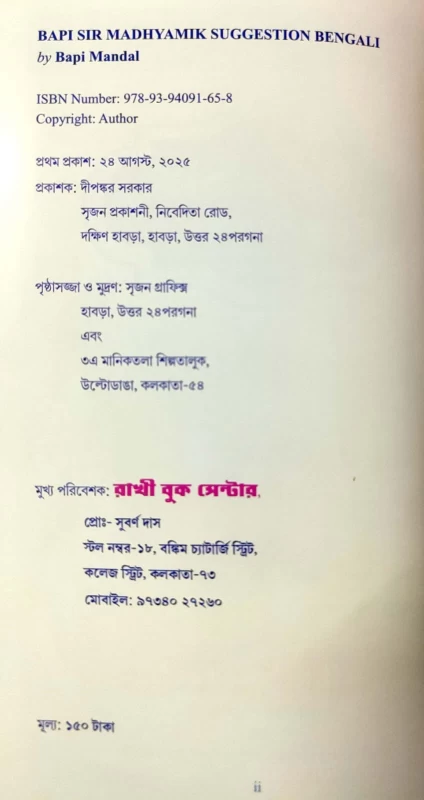 BAPI SIR MADHYAMIK SUGGESTION BENGALI
by Bapi Mandal
ISBN Number: 978-93-94091-65-8
Copyright: Author
প্রথম প্রকাশ: ২৪ আগস্ট, ২০২৫
প্রকাশক: দীপঙ্কর সরকার
সৃজন প্রকাশনী, নিবেদিতা রোড,
দক্ষিণ হাবড়া, হাবড়া, উত্তর ২৪পরগনা
পৃষ্ঠাসজ্জা ও মুদ্রণ: সৃজন গ্রাফিক্স
হাবড়া, উত্তর ২৪পরগনা
এবং
৩এ মানিকতলা শিল্পতালুক,
উল্টোডাঙা, কলকাতা-৫৪
মুখ্য পরিবেশক: রাখী বুক সেন্টার,
প্রোঃ- সুবর্ণ দাস
স্টল নম্বর-১৮, বঙ্কিম চ্যাটার্জি স্ট্রিট,
কলেজ স্ট্রিট, কলকাতা-৭৩
মোবাইল: ৯৭৩৪০ ২৭২৬০
মূল্য: ১৫০ টাকা
ii